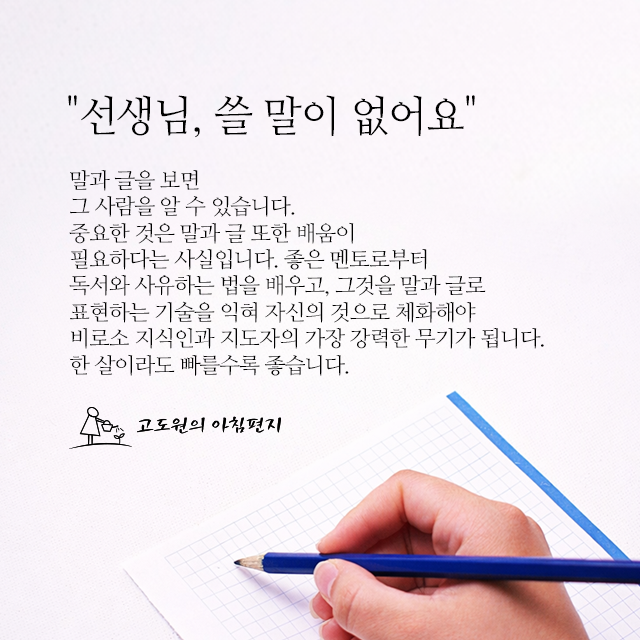 "선생님, 쓸 말이 없어요"
말과 글을 보면
그 사람을 알 수 있습니다.
중요한 것은 말과 글 또한 배움이
필요하다는 사실입니다. 좋은 멘토로부터
독서와 사유하는 법을 배우고, 그것을 말과 글로
표현하는 기술을 익혀 자신의 것으로 체화해야
비로소 지식인과 지도자의 가장 강력한 무기가 됩니다.
한 살이라도 빠를수록 좋습니다.
고도원의 아침편지